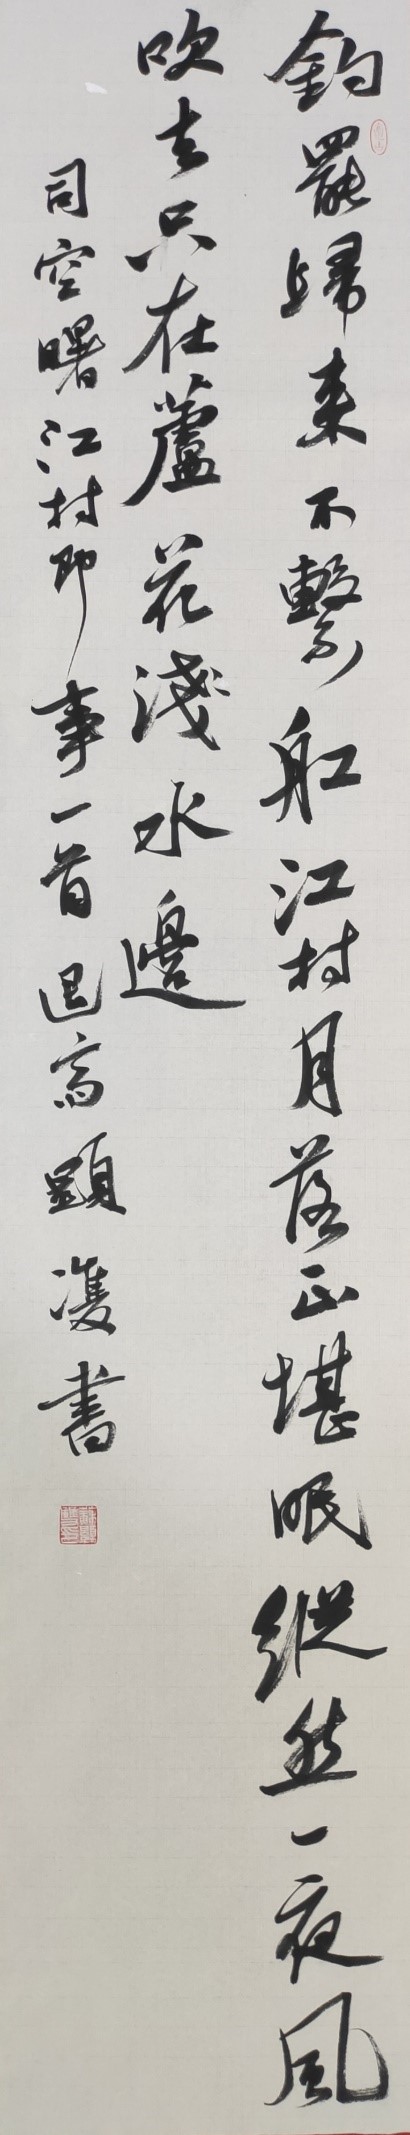 釣罷歸来不繫舡江村月落正堪眠縱然一夜風
吹去只在蘆花淺水邊
司空曙江村即事一首
書